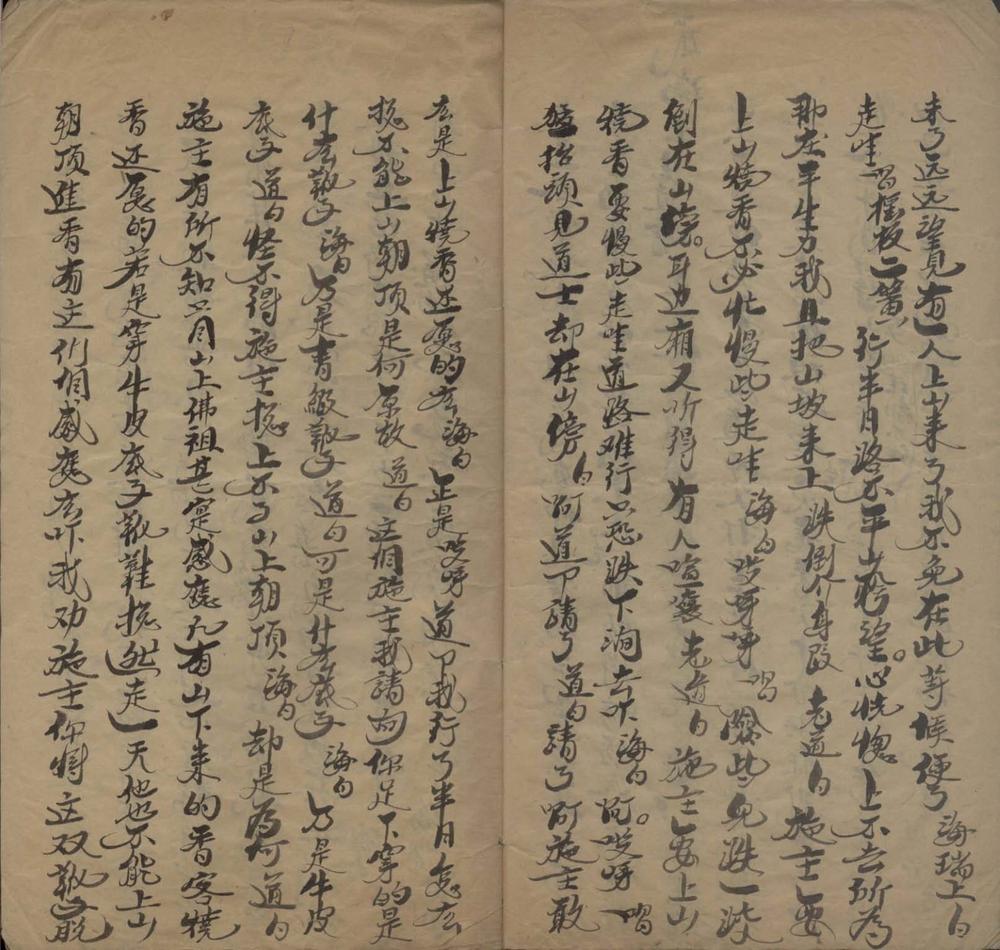 来了远远望見有一人上山来了我不免在此等候便了 海瑞上白
走哇 唱摇板二簧 行半日路不平山於望心恍惚上不去所為
那庄平生力我且把山坡来上 跌倒介身段 老道白 施主要
上山燒香不必忙慢些走哇 海白 哎呀呀 唱 險些免跌一跤
倒在山塝耳边廂又听得有人喧嚷 老道白 施主要上山
燒香要慢些走哇道路难行只恐跌下涧去吓 海白 阿哎呀 唱
猛抬頭見道士却在山傍 白 啊道下請了 道白 請了啊施主敢
么是上山燒香还愿的么 海白 正是哎呀道下我行了半日怎么
挽不能上山朝顶是何原故 道白 这個施主我請问你足下穿的是
什么靴子 海白 乃是青緞靴子 道白 可是什么底子 海白 乃是牛皮
底子 道白 怪不得施主挽上不了山上朝顶 海白 却是為何 道白
施主有所不知只因山上佛祖甚寔感應凡有山下来的香客燒
香还愿的若是穿牛皮底子靴鞋挽然走一天他也不能上山
朝顶進香有这们個感應么吓我劝施主你將这双靴子脫